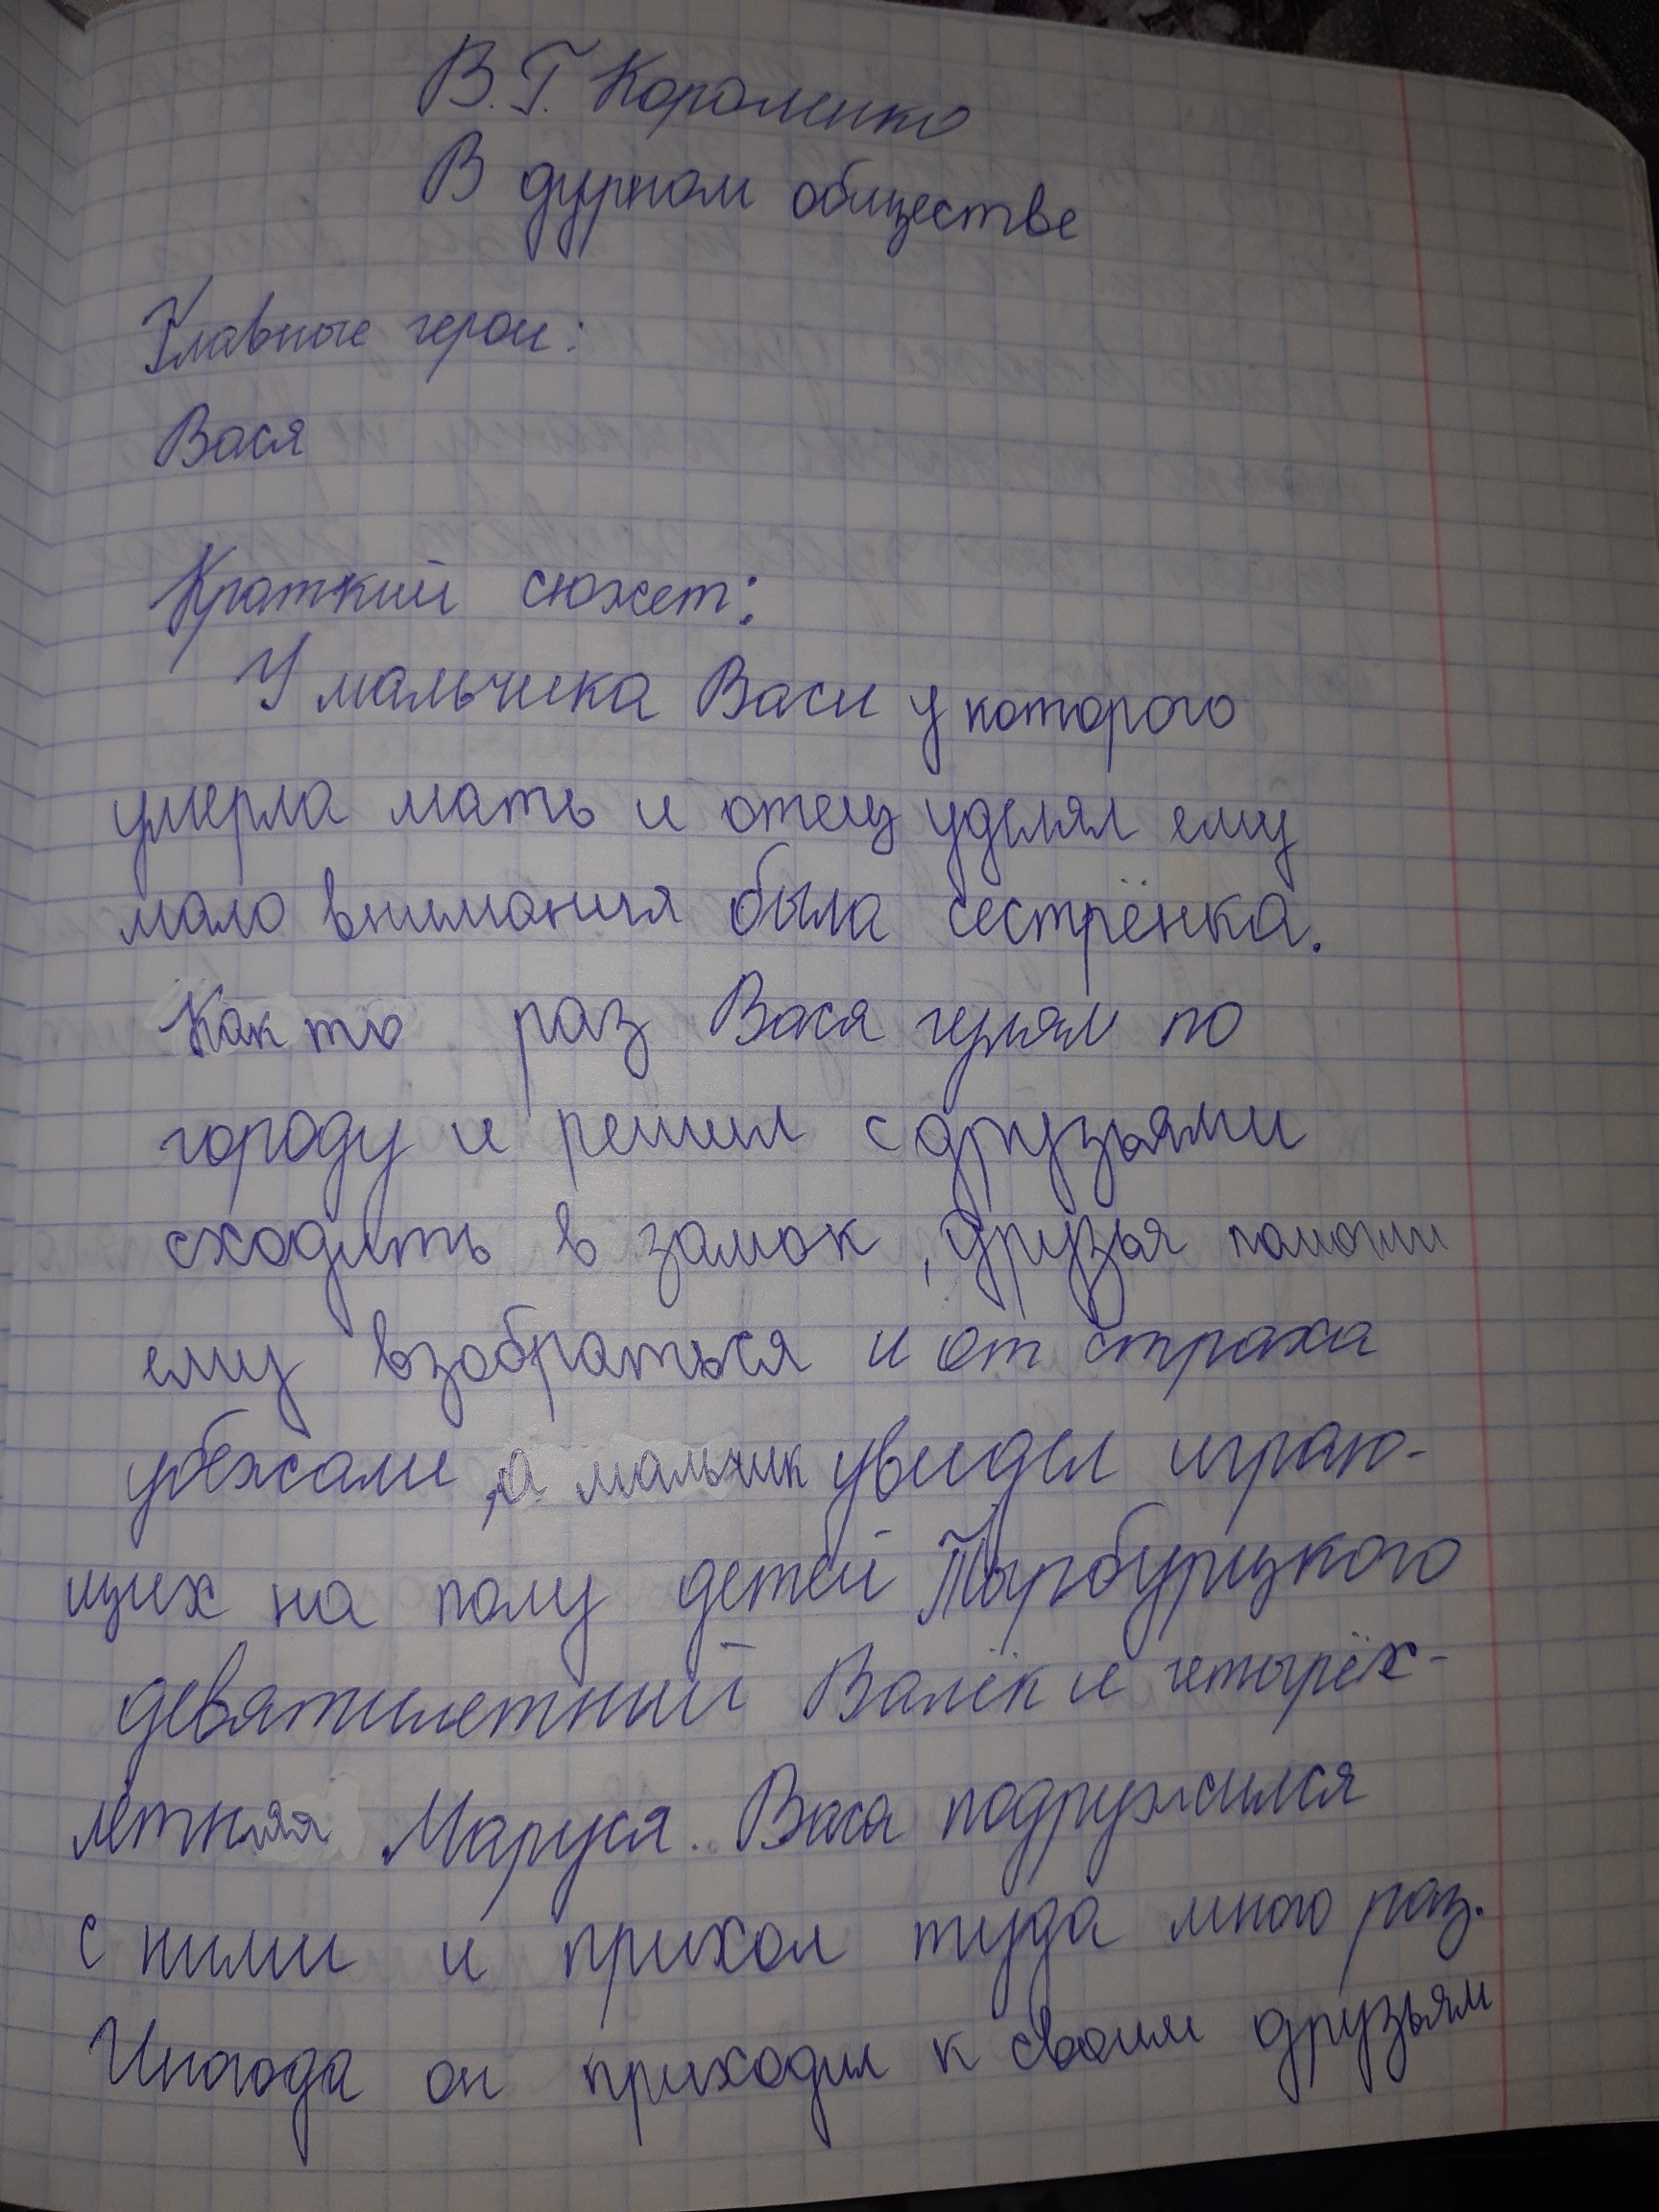 В.Г. Короленко
В дурном обществе
Главные герои:
Вася
Краткий сюжет:
У мальчика Васи у которого
умерла мать и отец уделял ему
мало внимания была сестрёнка.
Как то раз Вася гулял по
городу и решил с друзьями
сходить в замок, друзья помогли
ему взобраться и от страха
убежали, а мальчик увидел играю-
щих на полу детей Тырбурцкого
девятилетний Валёк и четырёх-
летняя Маруся. Вася подружился
с ними и прихол туда много раз.
Иногода он приходил к своим друзьям